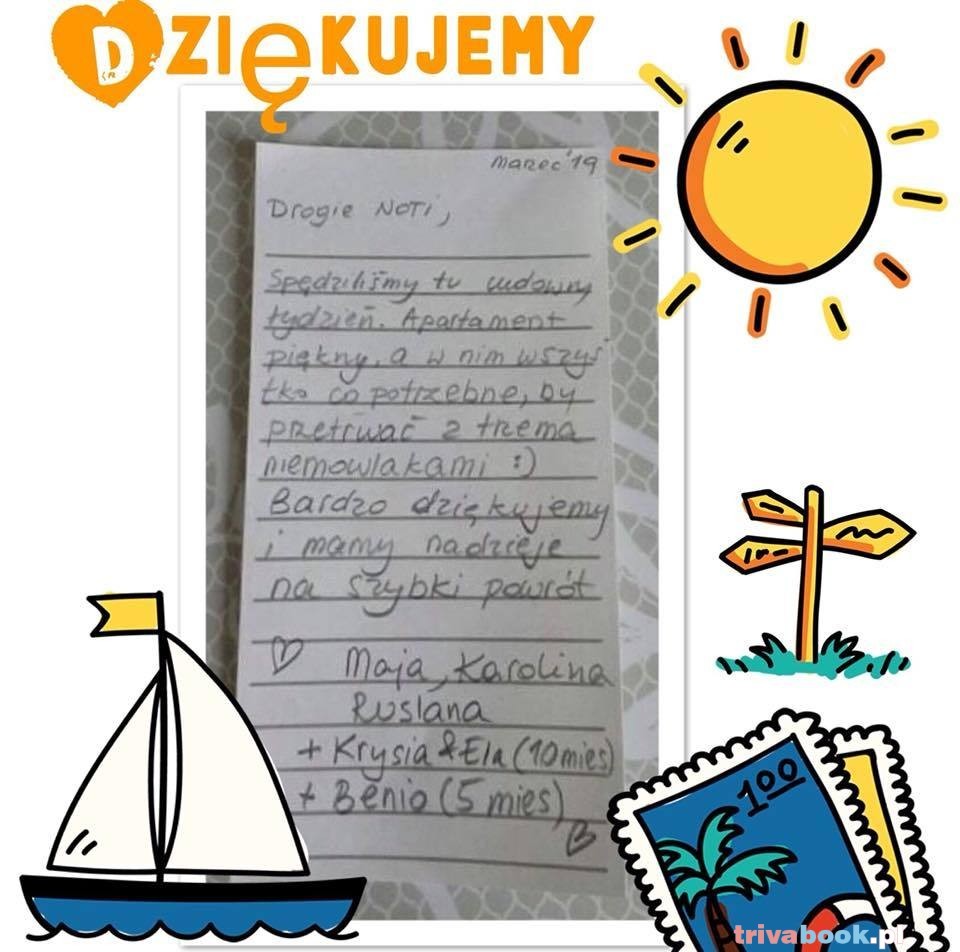 DZIĘKUJEMY
marzec'19
Drogie NOTI,
Spędziliśmy tu cudowny
tydzień. Apartament
piękny, a w nim wszyś
tko co potrzebne, by
przetrwać z trzema
niemowlakami :)
Bardzo dziękujemy
i mamy nadzieje
na szybki powrót
♡ Maja, Karolina
Ruslana
+ Krysia & Ela (10 mies)
+ Benio (5 mies)
♡
1.00
trivabook.pl